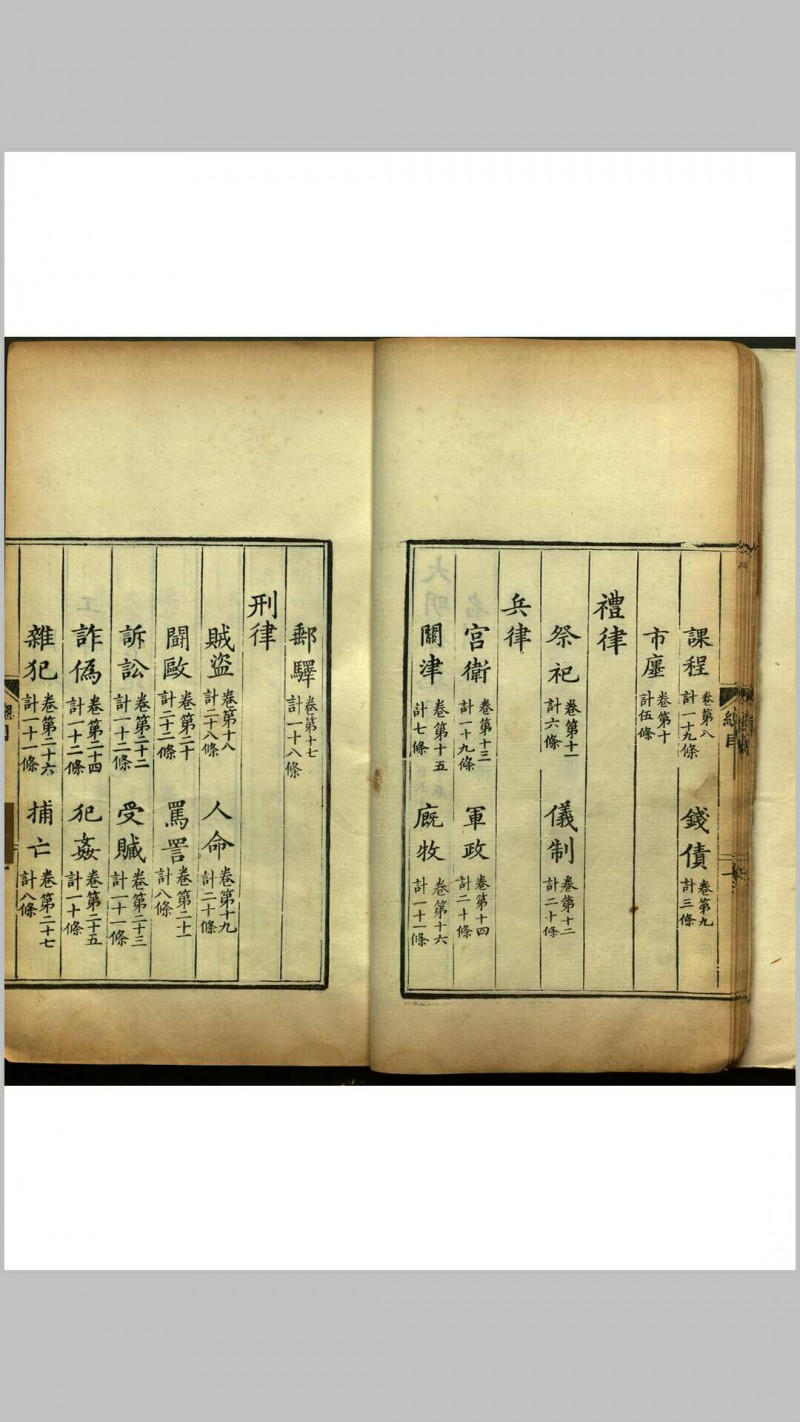 課程 卷第八 計一十九條 錢債 卷第九 計三條
市廛 卷第十 計伍條
禮律
祭祀 卷第十一 計六條 儀制 卷第十二 計二十條
兵律
宮衛 卷第十三 計一十九條 軍政 卷第十四 計二十條
關津 卷第十五 計七條 廐牧 卷第十六 計一十一條
郵驛 卷第十七 計一十八條
刑律
賊盜 卷第十八 計二十八條 人命 卷第十九 計二十條
鬪歐 卷第二十 計二十二條 罵詈 卷第二十一 計八條
訴訟 卷第二十二 計一十二條 受贓 卷第二十三 計一十一條
詐偽 卷第二十四 計一十二條 犯姦 卷第二十五 計一十條
雜犯 卷第二十六 計一十一條 捕亡 卷第二十七 計八條